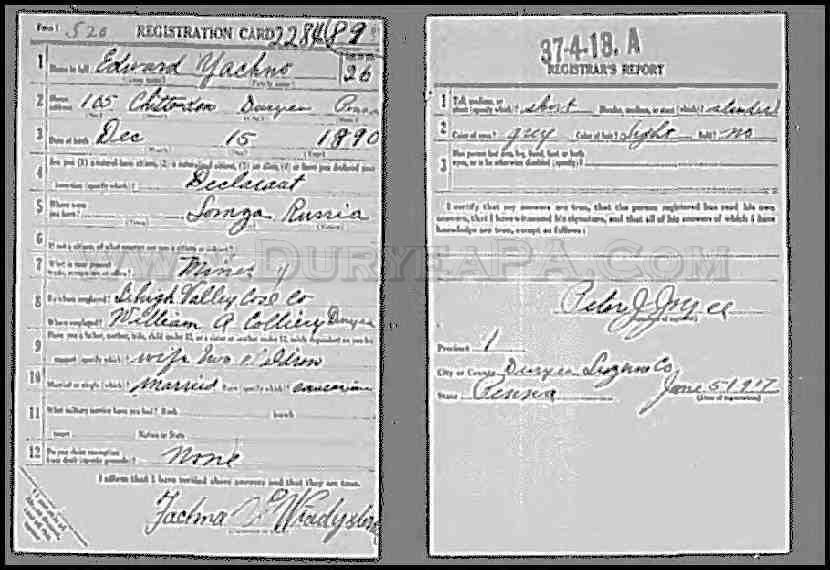 Form 1 520 REGISTRATION CARD 228489
1 Name in full Edward Yachno 26
2 Home address 105 Duryea Penna
3 Date of birth Dec 15 1890
4 Are you (1) a natural-born citizen, (2) a naturalized citizen, (3) an alien, (4) or have you declared your
intention (specify which)? Declarant
5 Where were you born? Lomza Russia
6 If not a citizen, of what country are you a citizen or subject?
7 What is your present trade, occupation, or office? Miner
8 By whom employed? Lehigh Valley Coal Co
Where employed? William A Colliery Duryea
9 Have you a father, mother, wife, child under 12, or a sister or brother under 12, solely dependent on you for
support (specify which)? wife two children
10 Married or single (which)? Married Race (specify which)? Caucasian
11 What military service have you had? Rank branch
years Nation or State
12 Do you claim exemption from draft (specify grounds)? None
I affirm that I have verified above answers and that they are true.
37-4-18. A
REGISTRAR'S REPORT
1 Tall, medium, or short (specify which)? short Slender, medium, or stout (which)? slender
2 Color of eyes? grey Color of hair? light Bald? no
3 Has person lost arm, leg, hand, foot, or both
eyes, or is he otherwise disabled (specify)?
I certify that my answers are true, that the person registered has read his own
answers, that I have witnessed his signature, and that all of his answers of which I have
knowledge are true, except as follows:
www.DuryeaPA.com
Peter J Joyce
Precinct 1
City or County Duryea Luzerne Co
State Penna June 5 1917
(Date of registration)